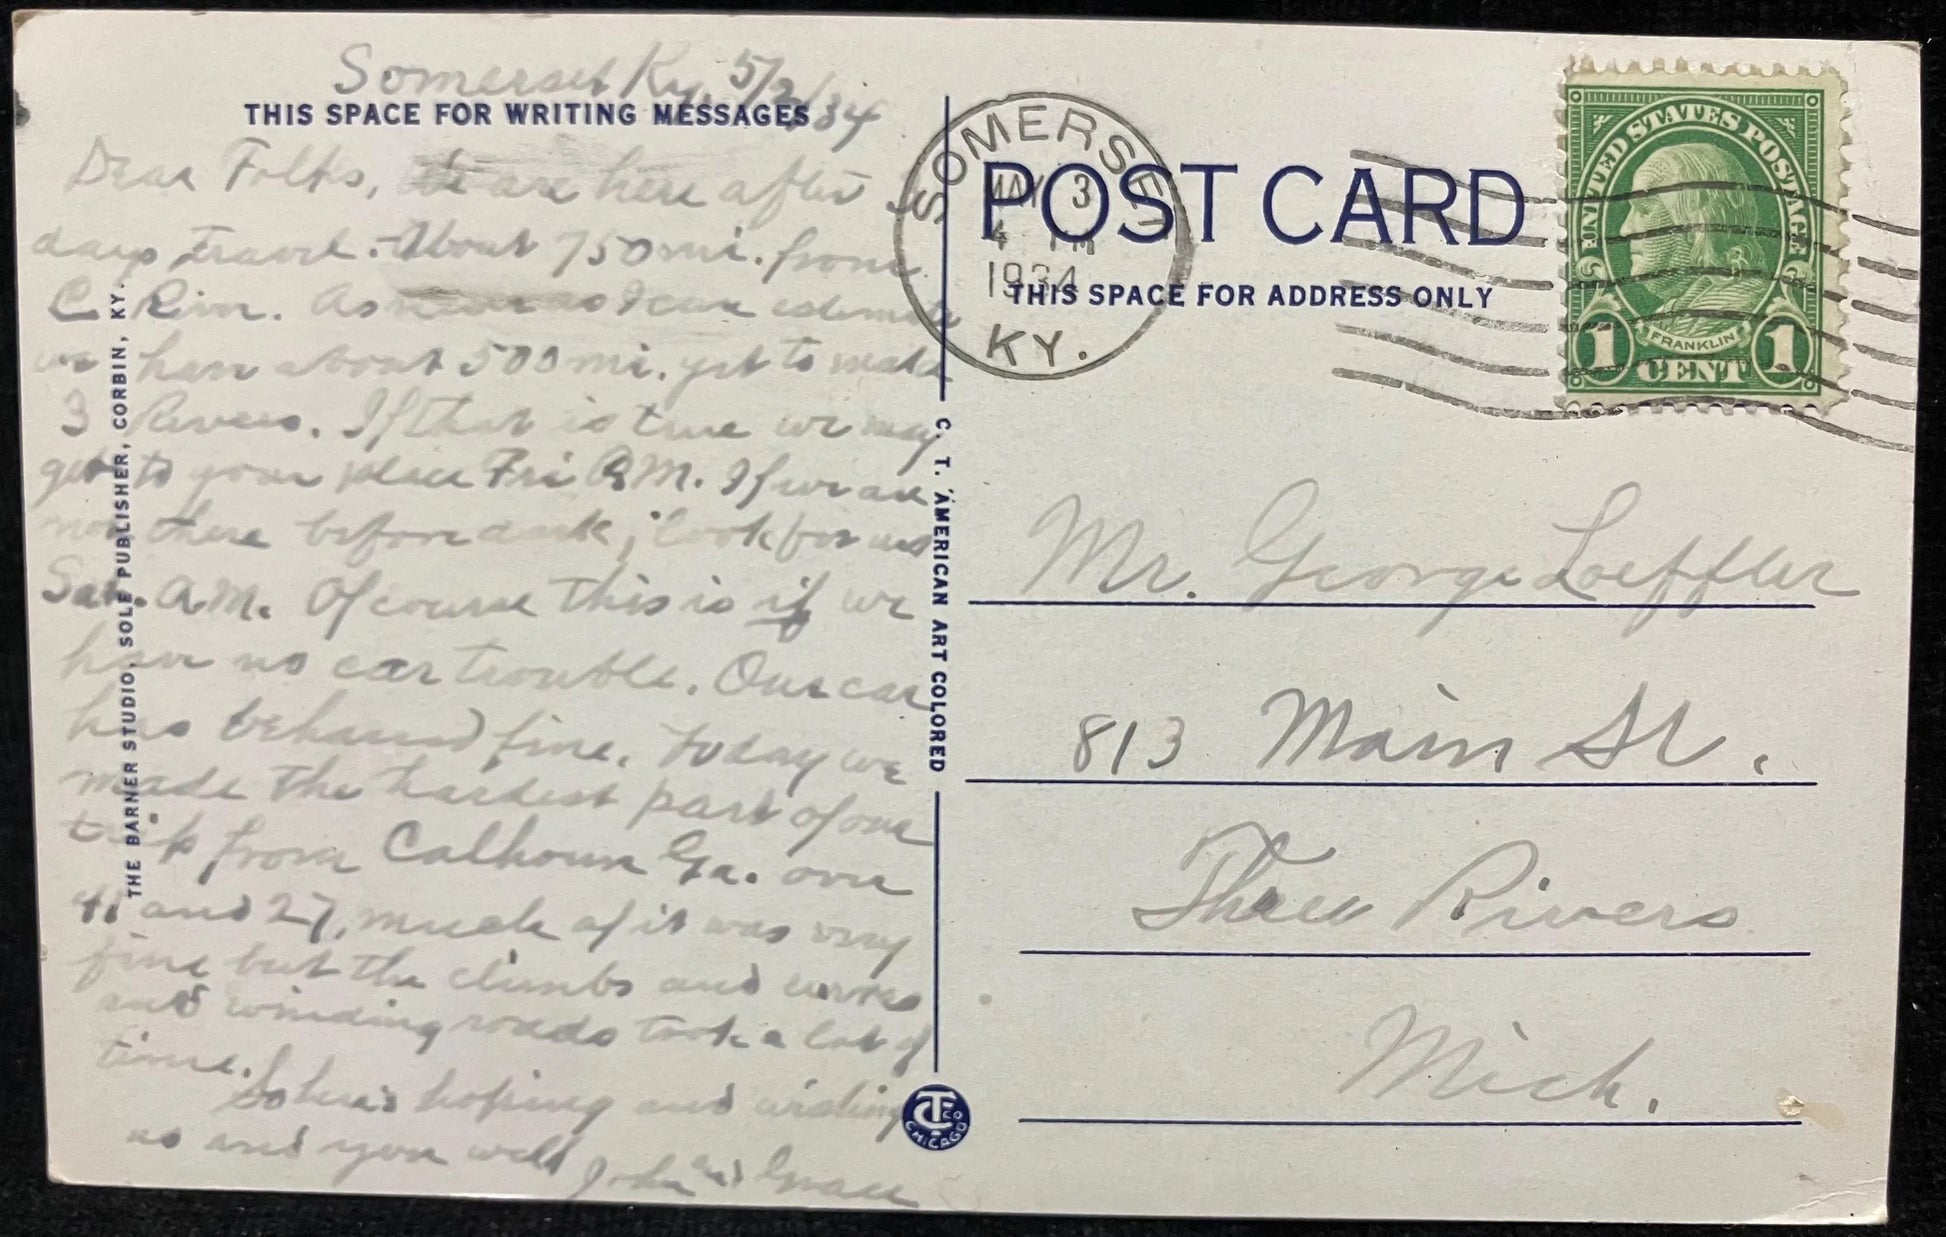 Somerset Ky. 5/2/34
THIS SPACE FOR WRITING MESSAGES
Dear Folks, We are here after
days travel. About 750 mi. from
C. River. As near as I can estimate
we have about 500 mi. yet to make
3 Rivers. If that is true we may
get to your place Fri A.M. If we are
not there before dark, look for us
Sat. A.M. Of course this is if we
have no car trouble. Our car
has behaved fine. Today we
made the hardest part of our
trip from Calhoun Ga. over
41 and 27, much of it was very
fine but the climbs and curves
and winding roads took a lot of
time.
So here's hoping and wishing
us and you well John and Grace
THE BARNER STUDIO, SOLE PUBLISHER, CORBIN, KY.
C. T. AMERICAN ART COLORED
CTCO
CHICAGO
SOMERSET
MAY 3
4 PM
1934
KY.
POST CARD
THIS SPACE FOR ADDRESS ONLY
UNITED STATES POSTAGE
FRANKLIN
1 CENT 1
Mr. George Loeffler
813 Main St.
Three Rivers
Mich.